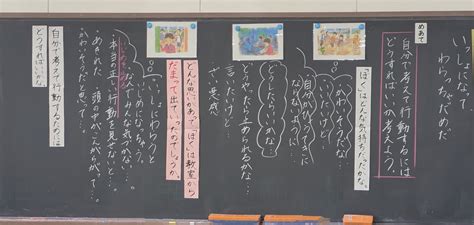 めあて
いっしょになって
わらっちゃだめだ
自分で考えて行動するには
どうすればいいか考えよう。
「ぼく」はどんな気持ちだったかな。
かわいそうだな
言いたいけど…
自分がひどいことに
なるよ
どうしたらいいかな
どうやったら止められるかな…
言いたいけど…
どんな思いがあって「ぼく」は教室から
だまって出ていったのでしょうか。
いっしょにわらうと
なんでみんな気づかない
本当の正しい行動を見せないと…
頭の中がこんがらがって…。
かわいそうだと思って…。
自分で考えて行動するためには
どうすればいいかな。